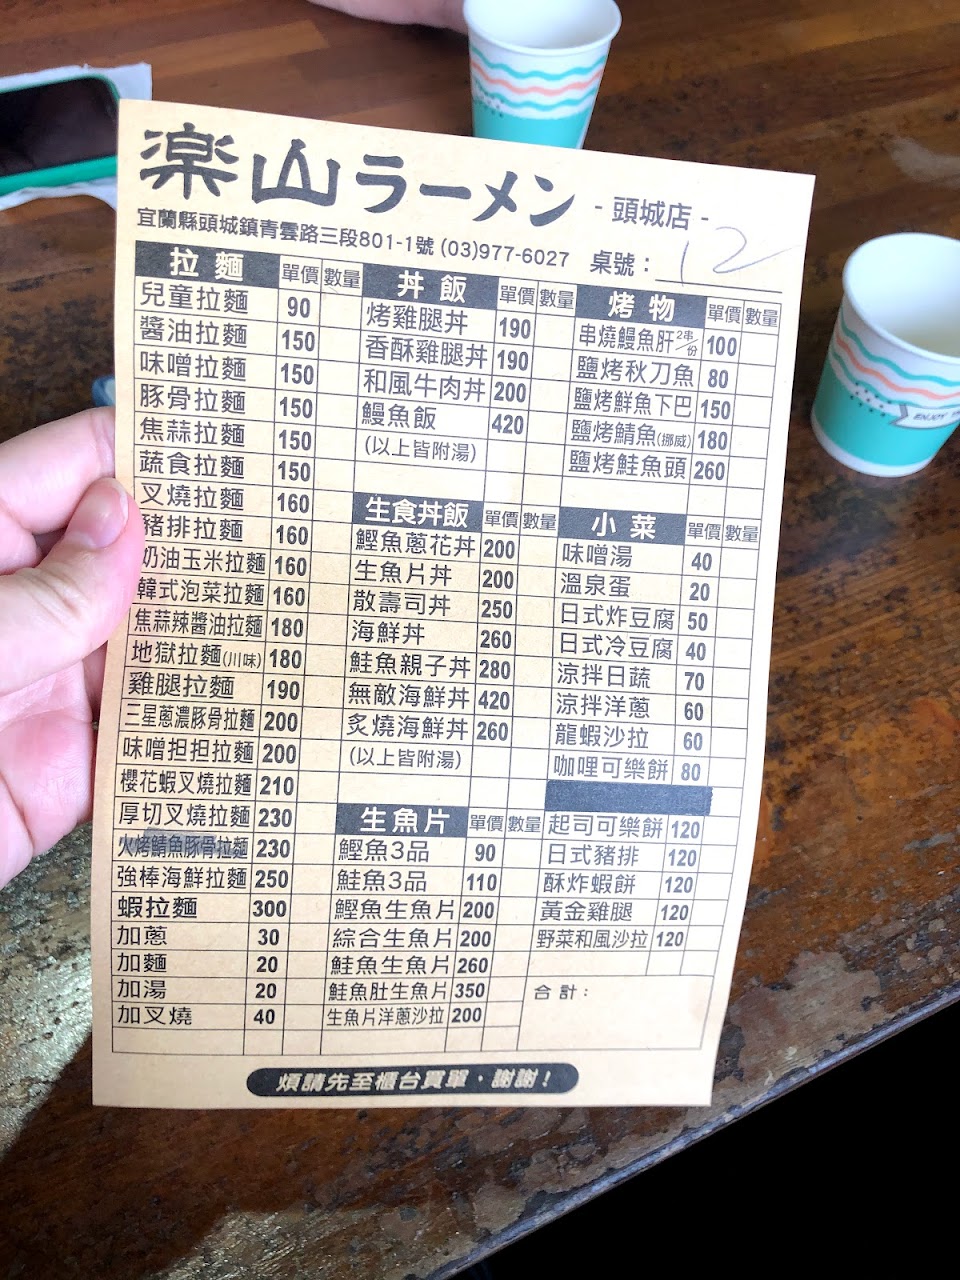 楽山ラーメン - 頭城店 -
宜蘭縣頭城鎮青雲路三段801-1號 (03)977-6027 桌號： 12
拉麵 單價 數量
兒童拉麵 90
醬油拉麵 150
味噌拉麵 150
豚骨拉麵 150
焦蒜拉麵 150
蔬食拉麵 150
叉燒拉麵 160
豬排拉麵 160
奶油玉米拉麵 160
韓式泡菜拉麵 160
焦蒜辣醬油拉麵 180
地獄拉麵(川味) 180
雞腿拉麵 190
三星蔥濃豚骨拉麵 200
味噌担担拉麵 200
櫻花蝦叉燒拉麵 210
厚切叉燒拉麵 230
火烤鯖魚豚骨拉麵 230
強棒海鮮拉麵 250
蝦拉麵 300
加蔥 30
加麵 20
加湯 20
加叉燒 40
丼飯 單價 數量
烤雞腿丼 190
香酥雞腿丼 190
和風牛肉丼 200
鰻魚飯 420
(以上皆附湯)
生食丼飯 單價 數量
鰹魚蔥花丼 200
生魚片丼 200
散壽司丼 250
海鮮丼 260
鮭魚親子丼 280
無敵海鮮丼 420
炙燒海鮮丼 260
(以上皆附湯)
生魚片 單價 數量
鰹魚3品 90
鮭魚3品 110
鰹魚生魚片 200
綜合生魚片 200
鮭魚生魚片 260
鮭魚肚生魚片 350
生魚片洋蔥沙拉 200
烤物 單價 數量
串燒鰻魚肝2串/份 100
鹽烤秋刀魚 80
鹽烤鮮魚下巴 150
鹽烤鯖魚(挪威) 180
鹽烤鮭魚頭 260
小菜 單價 數量
味噌湯 40
溫泉蛋 20
日式炸豆腐 50
日式冷豆腐 40
涼拌日蔬 70
涼拌洋蔥 60
龍蝦沙拉 60
咖哩可樂餅 80
起司可樂餅 120
日式豬排 120
酥炸蝦餅 120
黃金雞腿 120
野菜和風沙拉 120
合計：
煩請先至櫃台買單，謝謝！
ENJOY